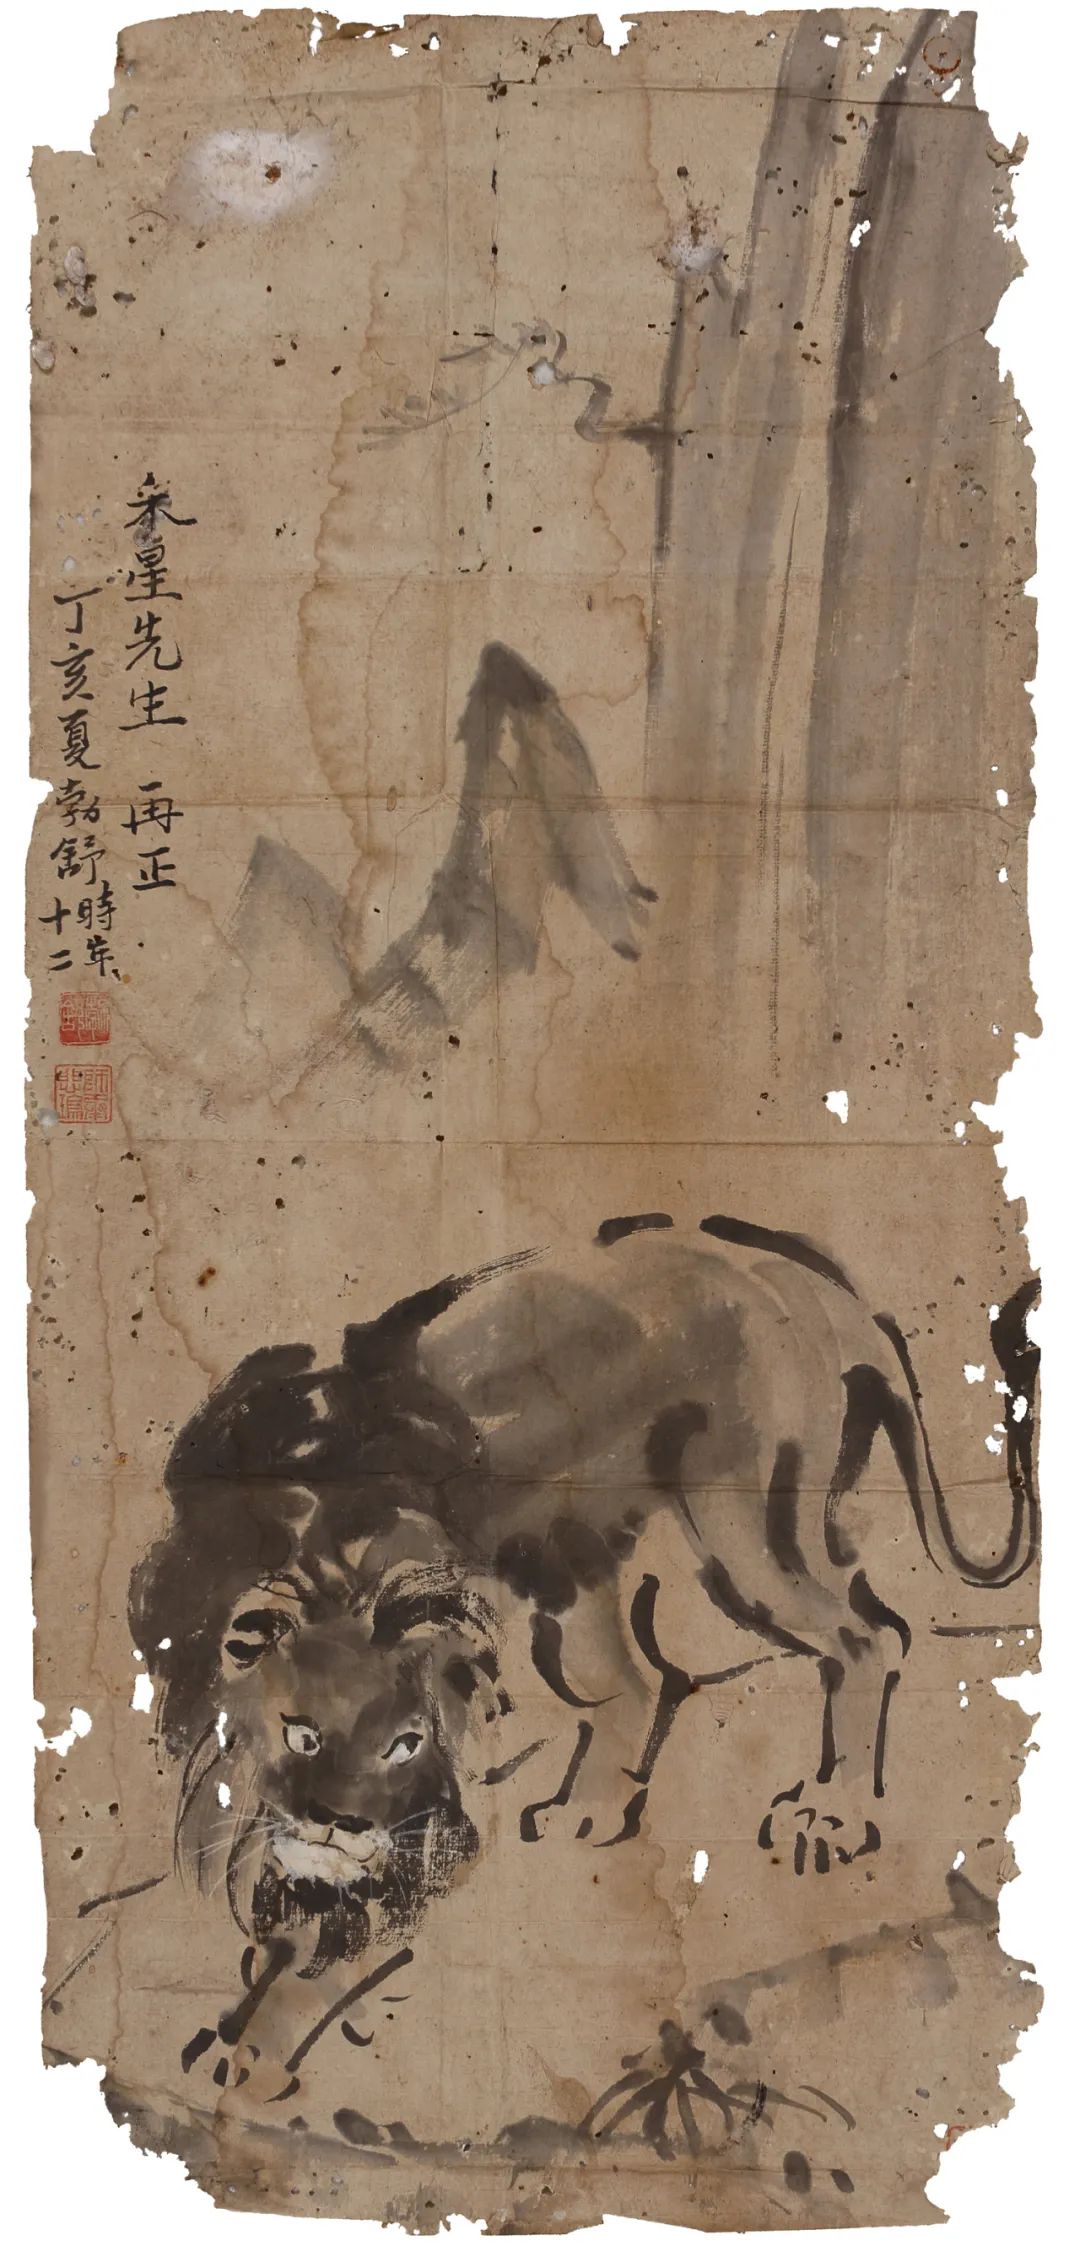 采星先生 再正
丁亥夏勃舒時年十二